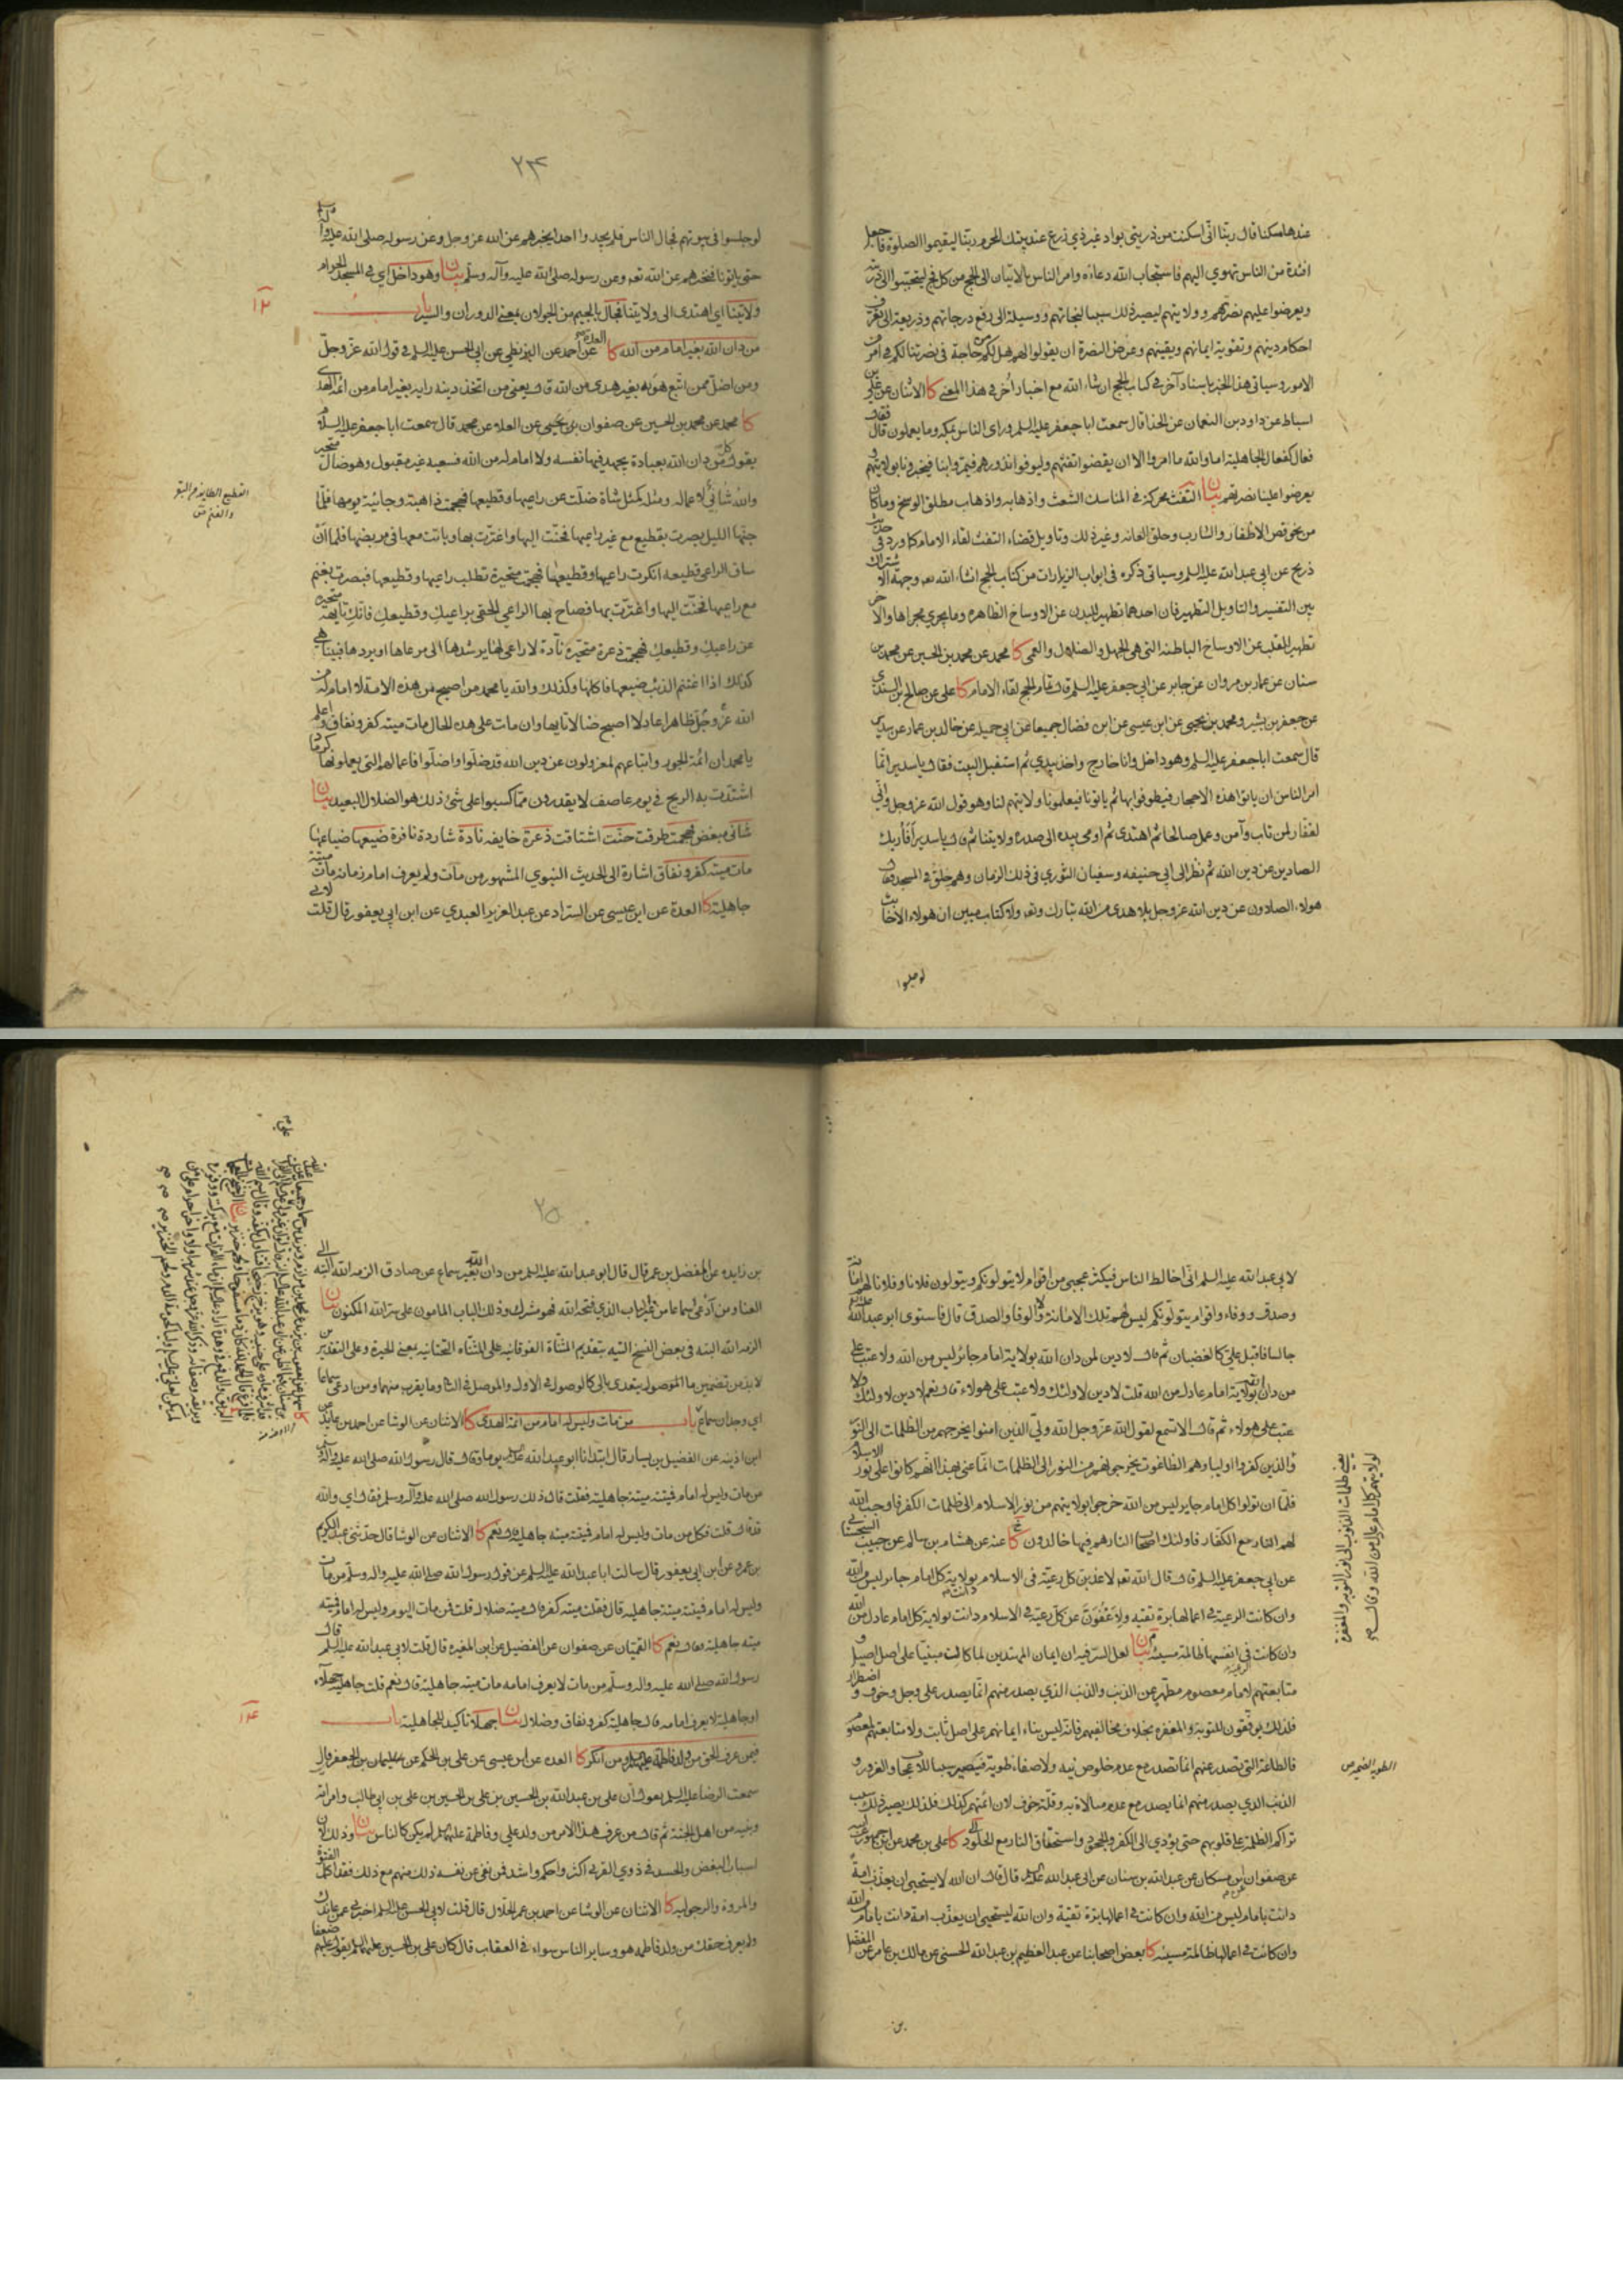 عندها مسكنا قال ربنا اني اسكنت من ذريتي بواد غير ذي زرع عند بيتك المحرم ربنا ليقيموا الصلوة فاجعل
افئدة من الناس تهوي اليهم فاستجاب الله دعاءه وامر الناس بالاتيان الى الحج من كل فج
ويعرضوا عليهم نصرتهم وولايتهم ليصير ذلك سببا لنجاتهم ووسيلة الى رفع درجاتهم وذريعة الى تعرف
احكام دينهم وتقوية ايمانهم ويقينهم وعرض النصرة ان يقولوا لهم هل لكم من حاجة في نصرتنا لكم في امر من
الامور وسياتي هذا الخبر باسناد آخر في كتاب الحج ان شاء الله مع اخبار اخر في هذا المعنى كا الاثنان عن علي بن
اسباط عن داود بن النعمان عن الحذا قال سمعت ابا جعفر عليه السلم وراى الناس بمكه وما يعملون قال فقال
فعال كفعال الجاهلية اما والله ما امروا الا ان يقضوا تفثهم وليوفوا نذورهم فيمروا بنا فيخبرونا بولايتهم و
يعرضوا علينا نصرتهم بيان التفث محركة في المناسك الشعث واذهابه واذهاب مطلق الوسخ وما كان
من نحو قص الاظفار والشارب وحلق العانه وغير ذلك وتاويل قضاء التفث لقاء الامام كما ورد في حديث
ذريح عن ابي عبد الله عليه السلم وسياتي ذكره في ابواب الزيارات من كتاب الحج انشاء الله تعه وجهة الاشتراك
بين التفسير والتاويل التطهير فان احدهما تطهير للبدن عن الاوساخ الظاهره وما يجري مجراها والآخر
تطهير للقلب عن الاوساخ الباطنه التي هي الجهل والضلال والعمى كا محمد عن محمد بن الحسين عن محمد بن
سنان عن عمار بن مروان عن جابر عن ابي جعفر عليه السلم قال تمام الحج لقاء الامام كا علي عن صالح بن السندي
عن جعفر بن بشير ومحمد بن يحيى عن ابن عيسى عن ابن فضال جميعا عن ابي جميله عن خالد بن عمار عن سدير
قال سمعت ابا جعفر عليه السلم وهو داخل وانا خارج واخذ بيدي ثم استقبل البيت فقال يا سدير انما
امر الناس ان ياتوا هذه الاحجار فيطوفوا بها ثم ياتونا فيعلمونا ولايتهم لنا وهو قول الله عز وجل واني
لغفار لمن تاب وآمن وعمل صالحا ثم اهتدى ثم اومى بيده الى صدره ولايتنا ثم قال يا سدير أفأريك
الصادين عن دين الله ثم نظر الى ابي حنيفه وسفيان الثوري في ذلك الزمان وهم حلق في المسجد فقال
هولاء الصادون عن دين الله عز وجل بلا هدى من الله تبارك وتعه ولا كتاب مبين ان هولاء الاخابث
لو جلسوا
٢٣٤
لو جلسوا في بيوتهم فجال الناس فلم يجدوا احدا يخبرهم عن الله عز وجل وعن رسوله صلى الله عليه وآله
حتى ياتونا فنخبرهم عن الله تعه وعن رسوله صلى الله عليه وآله وسلم بيان وهو داخل اي في المسجد الحرام
ولايتنا اي اهتدى الى ولايتنا فجال بالجيم من الجولان بمعنى الدوران والسير باب
١٢
من دان الله بغير امام من الله كا العده عن احمد عن البزنطي عن ابي الحسن عليه السلم في قول الله عز وجل
ومن اضل ممن اتبع هويه بغير هدى من الله قال يعني من اتخذ دينه رايه بغير امام من ائمة الهدى
كا محمد عن محمد بن الحسين عن صفوان بن يحيى عن العلاء عن محمد قال سمعت ابا جعفر عليه السلم
يقول كل من دان الله بعبادة يجهد فيها نفسه ولا امام له من الله فسعيه غير مقبول وهو ضال متحير
والله شانئ لاعماله ومثله كمثل شاة ضلت عن راعيها وقطيعها فهجمت ذاهبة وجائية يومها فلما
القطيع الطايفة من البقر
والغنم ص
جنها الليل بصرت بقطيع مع غير راعيها فحنت اليها واغترت بها وباتت معها في مربضها فلما ان
ساق الراعي قطيعه انكرت راعيها وقطيعها فهجمت متحيرة تطلب راعيها وقطيعها فبصرت بغنم
مع راعيها فحنت اليها واغترت بها فصاح بها الراعي الحقي براعيك وقطيعك فانك تايهة متحيره
عن راعيك وقطيعك فهجمت ذعرة متحيره نادة لا راعي لها يرشدها الى مرعاها او يردها فبينا هي
كذلك اذا اغتنم الذئب ضيعها فاكلها وكذلك والله يا محمد من اصبح من هذه الامة لا امام له من
الله عز وجل ظاهرا عادلا اصبح ضالا تايها وان مات على هذه الحال مات ميته كفر ونفاق واعلم
يا محمد ان ائمة الجور واتباعهم لمعزولون عن دين الله قد ضلوا واضلوا فاعمالهم التي يعملونها كرماد
اشتدت به الريح في يوم عاصف لا يقدرون مما كسبوا على شئ ذلك هو الضلال البعيد بيان
شانئ مبغض فهجمت طرقت حنت اشتاقت ذعرة خايفه نادة شاردة نافرة ضيعها ضياعها
مات ميته كفر ونفاق اشارة الى الحديث النبوي المشهور من مات ولم يعرف امام زمانه مات ميتة
جاهلية كا العدة عن ابن عيسى عن السراد عن عبد العزيز العبدي عن ابن ابي يعفور قال قلت
لابي عبد الله عليه السلم اني اخالط الناس فيكثر عجبي من اقوام لا يتولونكم ويتولون فلانا وفلانا لهم امانة
وصدق ووفاء واقوام يتولونكم ليس لهم تلك الامانة ولا الوفا والصدق قال فاستوى ابو عبد الله
جالسا فاقبل علي كالغضبان ثم قال لا دين لمن دان الله بولاية امام جائر ليس من الله ولا عتب على
من دان بولاية امام عادل من الله قلت لا دين لاولئك ولا عتب على هولاء قال نعم لا دين لاولئك ولا
عتب على هولاء ثم قال الا تسمع لقول الله عز وجل الله ولي الذين امنوا يخرجهم من الظلمات الى النور
يعني ظلمات الذنوب الى نور التوبه والمغفرة
لولايتهم كل امام عادل من الله وقال
والذين كفروا اولياؤهم الطاغوت يخرجونهم من النور الى الظلمات انما عنى بهذا انهم كانوا على نور الاسلام
فلما ان تولوا كل امام جاير ليس من الله خرجوا بولايتهم من نور الاسلام الى ظلمات الكفر فاوجب الله
لهم النار مع الكفار فاولئك اصحاب النار هم فيها خالدون كا عنه عن هشام بن سالم عن حبيب السجستاني
عن ابي جعفر عليه السلم قال قال الله تعه لاعذبن كل رعية في الاسلام دانت بولاية كل امام جاير ليس من الله
وان كانت الرعية في اعمالها برة تقيه ولاعفون عن كل رعية في الاسلام دانت بولاية كل امام عادل من الله
وان كانت في انفسها ظالمة مسيئه بيان لعل السر فيه ان ايمان المهتدين لما كانت مبنيا على اصل اصيل و
متابعتهم لامام معصوم مطهر عن الذنب والذنب الذي يصدر منهم انما يصدر على وجل وخوف واضطرار
فلذلك يوفقون للتوبة والمغفره بخلاف مخالفيهم فانه ليس بناء ايمانهم على اصل ثابت ولا متابعتهم لمعصوم
فالطاعة التي تصدر عنهم انما تصدر مع عدم خلوص نيه ولا صفاء طوية فيصير سببا للاعجاب والغرور و
الطويه الضمير ص
الذنب الذي يصدر منهم انما يصدر مع عدم مبالاة به وقلة خوف لان ائمتهم كذلك فلذلك يصير ذلك سبب
تراكم الظلمة على قلوبهم حتى يؤدي الى الكفر والجحود واستحقاق النار مع الخلود كا علي بن محمد عن ابن جمهور عن ابيه
عن صفوان عن ابن مسكان عن عبد الله بن سنان عن ابي عبد الله عليه السلم قال قال ان الله لا يستحيي ان يعذب امة
دانت بامام ليس من الله وان كانت في اعمالها برة تقية وان الله ليستحيي ان يعذب امة دانت بامام من الله
وان كانت في اعمالها ظالمة مسيئه كا بعض اصحابنا عن عبد العظيم بن عبد الله الحسني عن مالك بن عامر عن المفضل
بن
٢٥
بن زايده عن المفضل بن عمر قال قال ابو عبد الله عليه السلم من دان الله بغير سماع عن صادق الزمه الله البته الى
العنا ومن ادعى سماعا من غير الباب الذي فتحه الله فهو مشرك وذلك الباب المامون على سر الله المكنون بيان
الزمه الله البته في بعض النسخ التيه بتقديم المثناة الفوقانيه على المثناه التحتانيه بمعنى الحيرة وعلى التقديرين
لابد من تضمين ما الموصول يتعدى بالى كالوصول في الاول والموصل في الثاني وما يقرب منهما ومن ادعى سماعا
اي وجدان سماع باب من مات وليس له امام من ائمة الهدى كا الاثنان عن الوشا عن احمد بن عايذ
ابن اذينه عن الفضيل بن يسار قال ابتدانا ابو عبد الله عليه السلم يوما وقال قال رسول الله صلى الله عليه وآله
من مات وليس له امام فميتته ميتة جاهلية فقلت قال ذلك رسول الله صلى الله عليه وآله وسلم فقال اي والله
قد قال قلت فكل من مات وليس له امام فميتته ميته جاهلية قال نعم كا الاثنان عن الوشا قال حدثني عبد الكريم
بن عمرو عن ابن ابي يعفور قال سالت ابا عبد الله عليه السلم عن قول رسول الله صلى الله عليه واله وسلم من مات
وليس له امام فميتته ميتة جاهليه قال فقلت ميته كفر قال ميته ضلال قلت فمن مات اليوم وليس له امام فميته
ميته جاهلية فقال نعم كا القميان عن صفوان عن الفضيل عن ابن المغيره قال قلت لابي عبد الله عليه السلم قال
رسول الله صلى الله عليه واله وسلم من مات لا يعرف امامه مات ميته جاهلية قال نعم قلت جاهلية جهلاء
او جاهلية لا يعرف امامه قال جاهلية كفر ونفاق وضلال بيان جهلاء تاكيد للجاهلية باب
١٤
فيمن عرف الحق من ولد فاطمة عليها السلم ومن انكر كا العده عن ابن عيسى عن علي بن الحكم عن سليمان بن الجعفر قال
سمعت الرضا عليه السلم يقول ان علي بن عبد الله بن الحسين بن علي بن الحسين بن علي بن ابي طالب وامراته
وبنيه من اهل الجنة ثم قال من عرف هذا الامر من ولد علي وفاطمة عليهما السلم لم يكن كالناس بيان وذلك لان
اسباب البغض والحسد في ذوي القربى اكثر واحكم واشد فمن نفى عن نفسه ذلك منهم مع ذلك فقد اكمل الفتوة
والمروة والرجولية كا الاثنان عن الوشا عن احمد بن عمر الحلال قال قلت لابي الحسن عليه السلم اخبرني عمن عاندك
ولم يعرف حقك من ولد فاطمه هو وساير الناس سواء في العقاب قال كان علي بن الحسين عليهما السلم يقول عليهم ضعفا